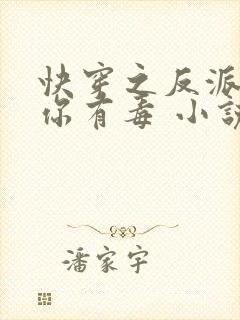 快穿之反派
你有毒 小
潘家宇